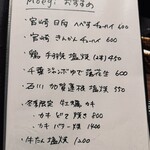 moegi おすすめ
・宮崎 日向 へべずチューハイ 600
・宮崎 きんかんチューハイ 600
・鶏 手羽焼 塩焼 (塩) 550
・千葉 ジャンボゆで落花生 600
・石川 加賀蓮根 塩焼 550
・冬季限定 牡蠣 カキ
カキ ピリ焼き 800
カキ バター焼 1400
・牛たん塩焼 1200